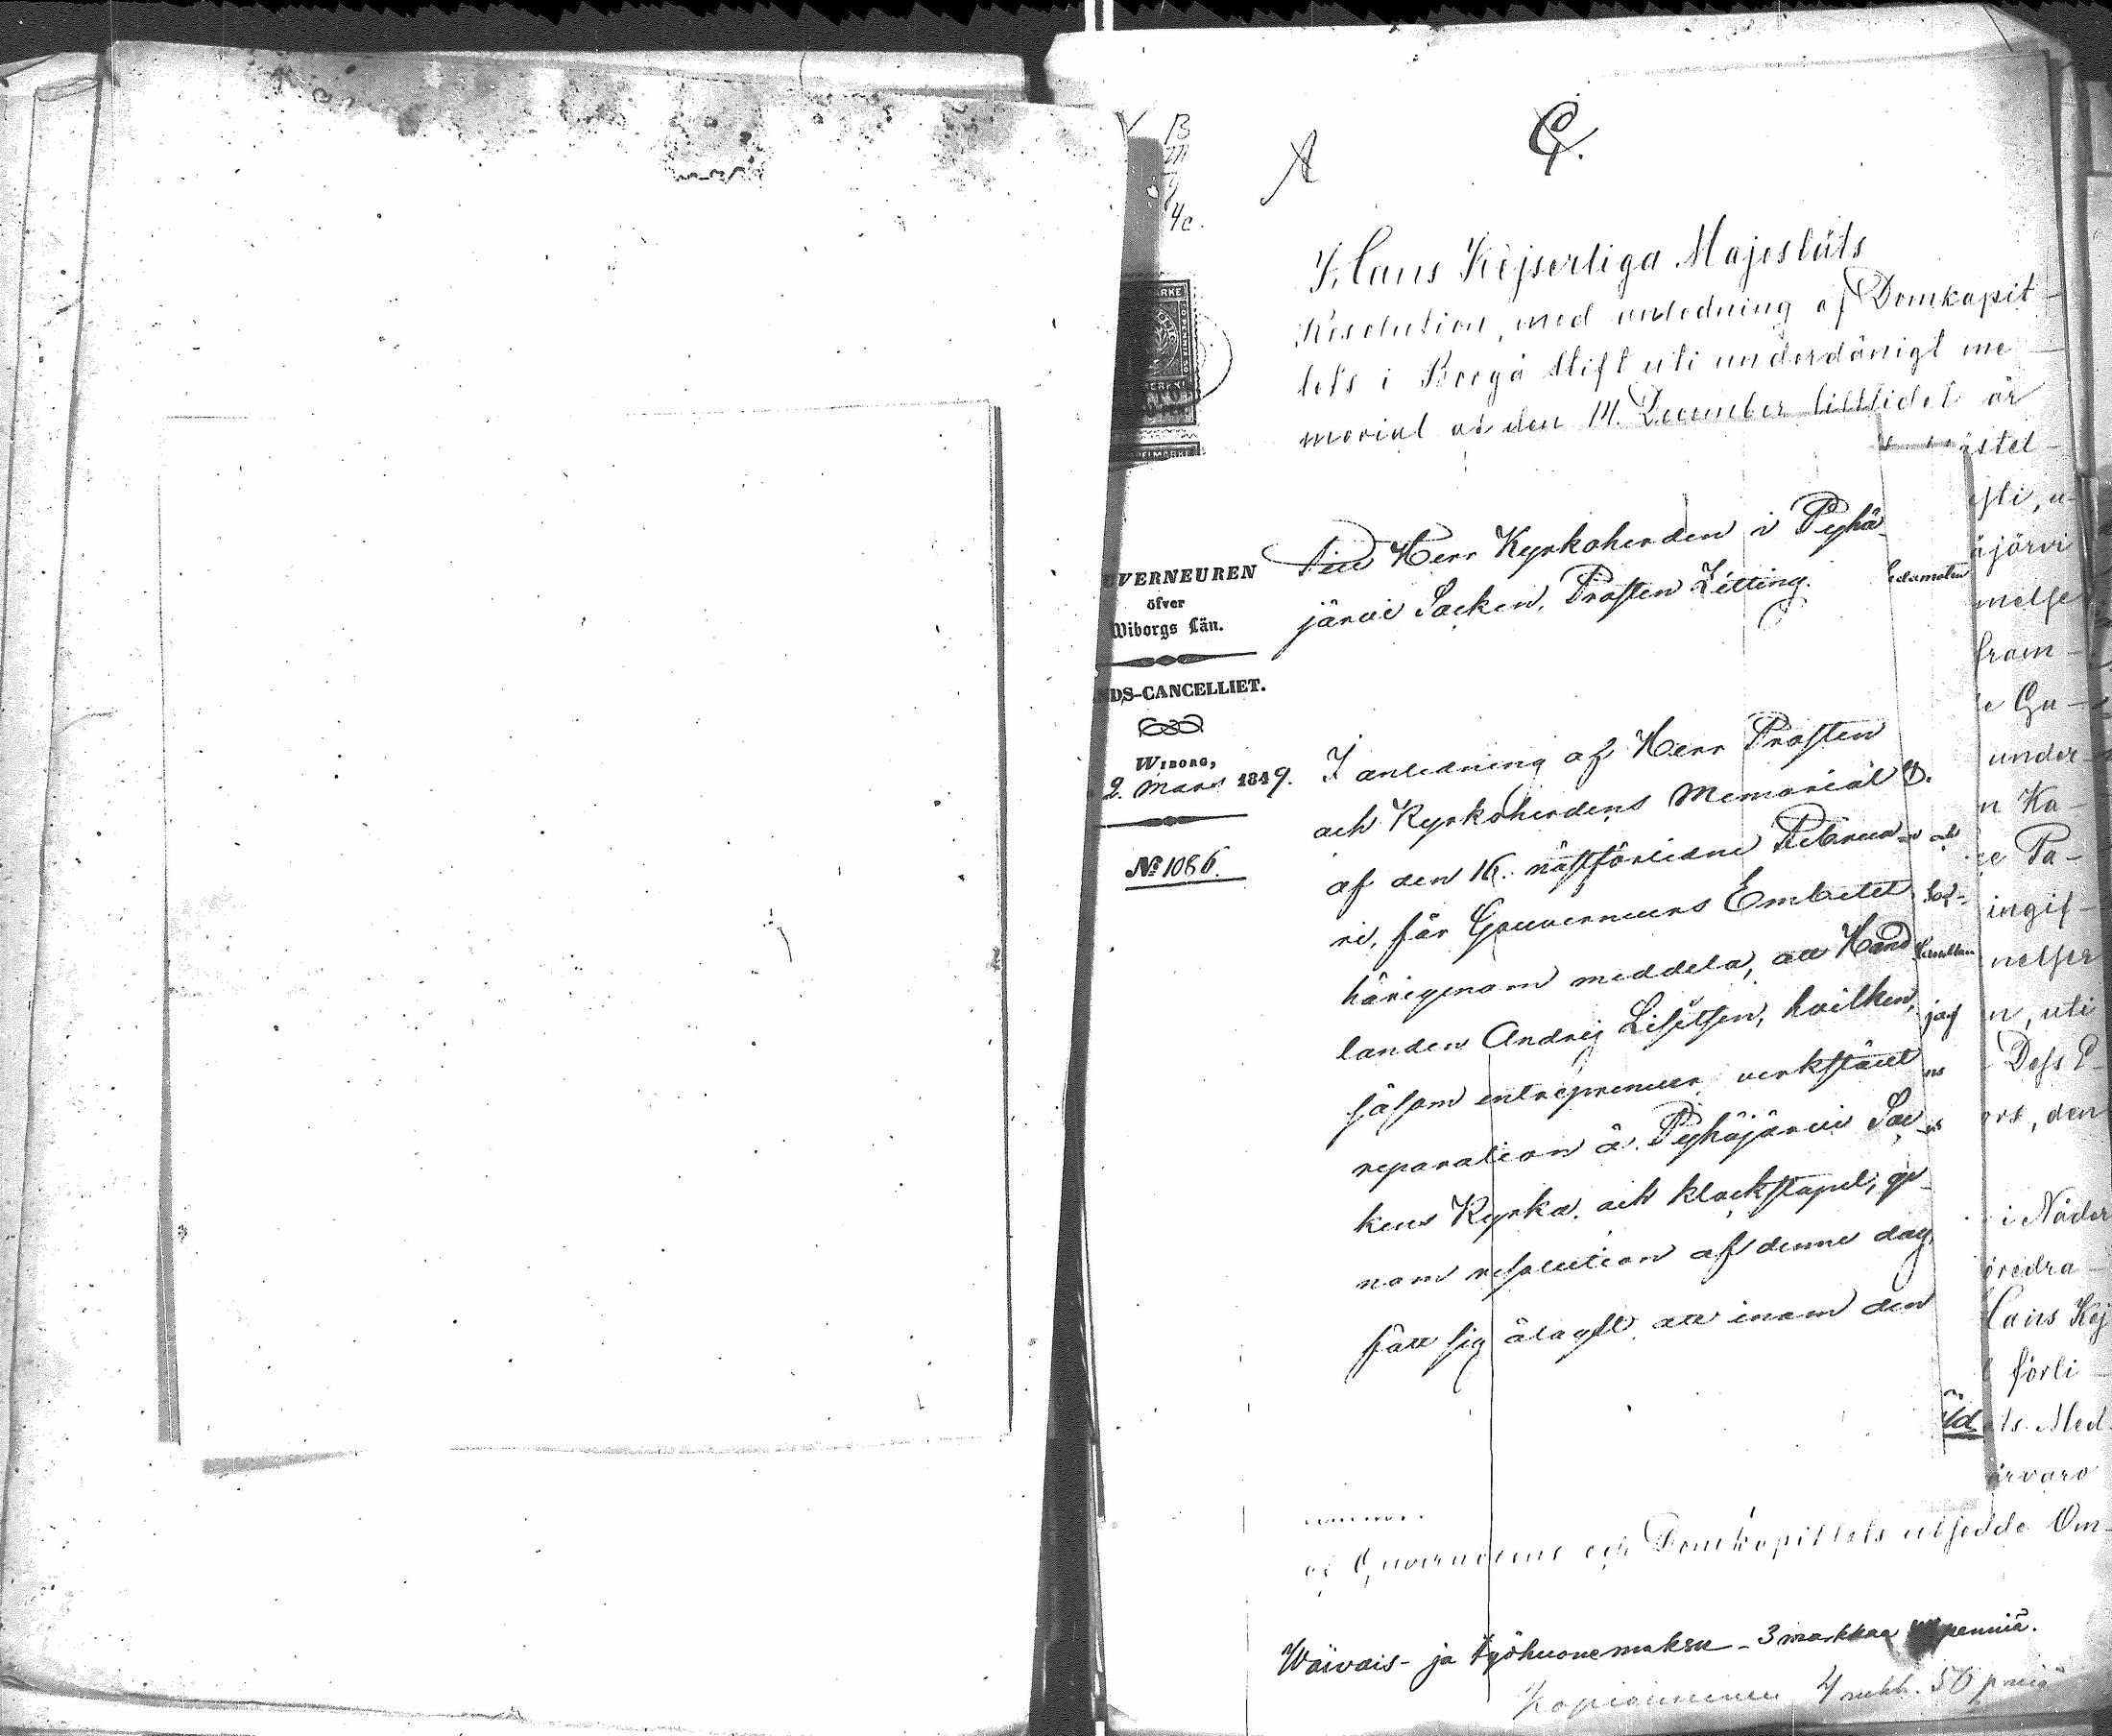 B
4c.
A
C.
Hans Kejserliga Majestäts
Resolution, med anledning af Domkapit-
lets i Borgå Stift uti underdånigt me-
morial af den 14. December sistlidet år
VERNEUREN
öfver
Wiborgs Län.
NDS-CANCELLIET.
WIBORG,
2. Mars 1849.
No 1086.
Till Herr Kyrkoherden i Pyhä-
järvi Socken, Prosten Zitting.
I anledning af Herr Prosten
och Kyrkoherdens Memorial
af den 16. nästförledne Februa-
ri, får Gouverneurs Embetet
härigenom meddela, att Hand-
landen Andrej Lisitsin, hvilken,
såsom entrepreneur verkstält
reparation å Pyhäjärvi Soc-
kens Kyrka och klockstapel, ge-
nom resolution af denne dag,
fått sig ålagdt att inom den
stel-
järvi
melse
fram-
under-
n Ka-
ingif-
nelser
jag
n, uti
Dess E-
ors, den
i Nåder
öredra-
Hans Kej
förli-
ts Med-
ärvaro
af Guverneurens och Domkapitlets utsedde Om-
Waivais- ja työhuonemaksu - 3 markkaa penniä.
4 mkk. 50 pniä